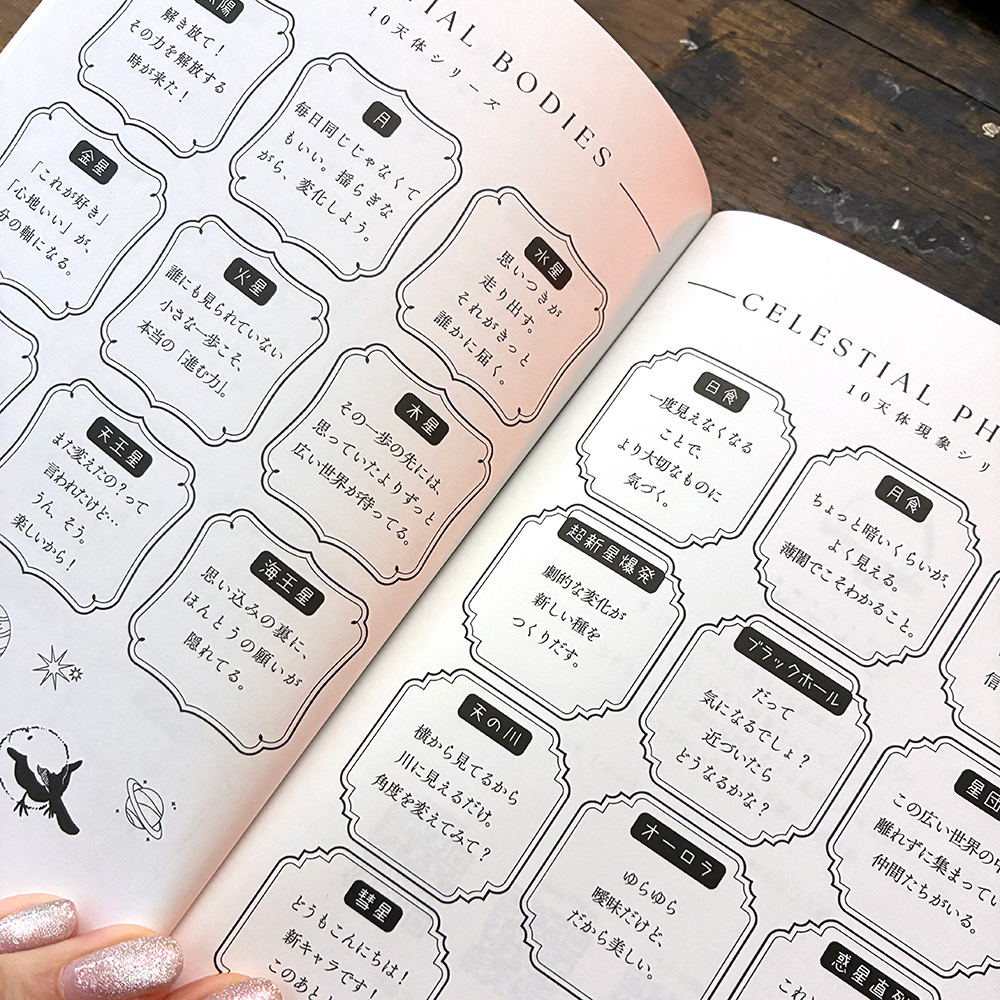 BODIES
10天体シリーズ
解き放て！
その力を解放する
時が来た！
月
毎日同じじゃなくて
もいい。揺らぎな
がら、変化しよう。
金星
「これが好き」
「心地いい」が、
分の軸になる。
火星
誰にも見られていない
小さな一歩こそ、
本当の「進む力」。
水星
思いつきが
走り出す。
それがきっと
誰かに届く。
天王星
まだ変えたの？って
言われたけど…
うん、そう。
楽しいから！
木星
その一歩の先には、
思っていたよりずっと
広い世界が待ってる。
海王星
思い込みの裏に、
ほんとうの願いが
隠れてる。
CELESTIAL PH
10天体現象シリ
日食
一度見えなくなる
ことで、
より大切なものに
気づく。
月食
ちょっと暗いくらいが、
よく見える。
薄闇でこそわかること。
超新星爆発
劇的な変化が
新しい種を
つくりだす。
ブラックホール
だって
気になるでしょ？
近づいたら
どうなるかな？
信
天の川
横から見てるから
川に見えるだけ。
角度を変えてみて？
オーロラ
ゆらゆら
曖昧だけど、
だから美しい。
星団
この広い世界の
離れずに集まってい
仲間たちがいる。
彗星
どうもこんにちは！
新キャラです！
このあと
惑星直列